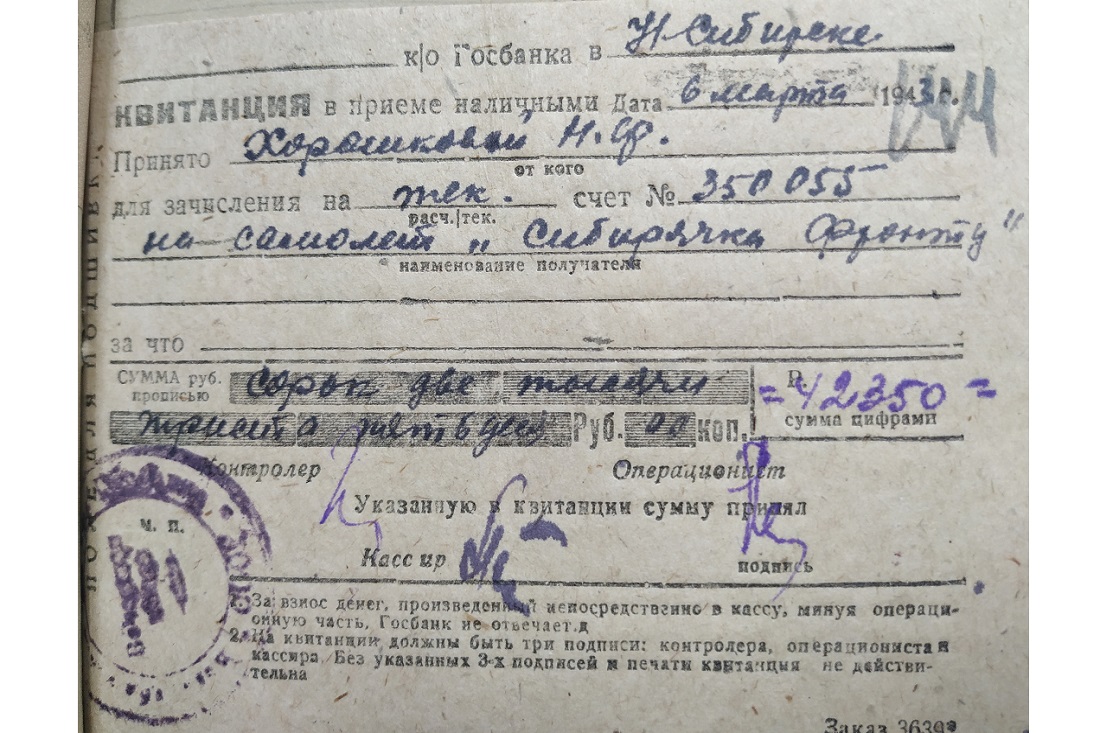 к/о Госбанка в Н Сибирске
КВИТАНЦИЯ в приеме наличными Дата 6 марта 1943 г.
Принято Хорошковой Н. Ф.
от кого
для зачисления на тек. счет № 350055
расч./тек.
на самолет „Сибирячка Фронту"
наименование получателя
за что
СУММА руб. прописью сорок две тысячи
триста пятьдес Руб. 00 коп.
Р. =42350=
сумма цифрами
Контролер Операционист
Указанную в квитанции сумму принял
м. п.
Кассир подпись
1. За взнос денег, произведенный непосредственно в кассу, минуя операци-
онную часть, Госбанк не отвечает.
2. На квитанции должны быть три подписи: контролера, операциониста и
кассира. Без указанных 3-х подписей и печати квитанция не действи-
тельна
Заказ 3639